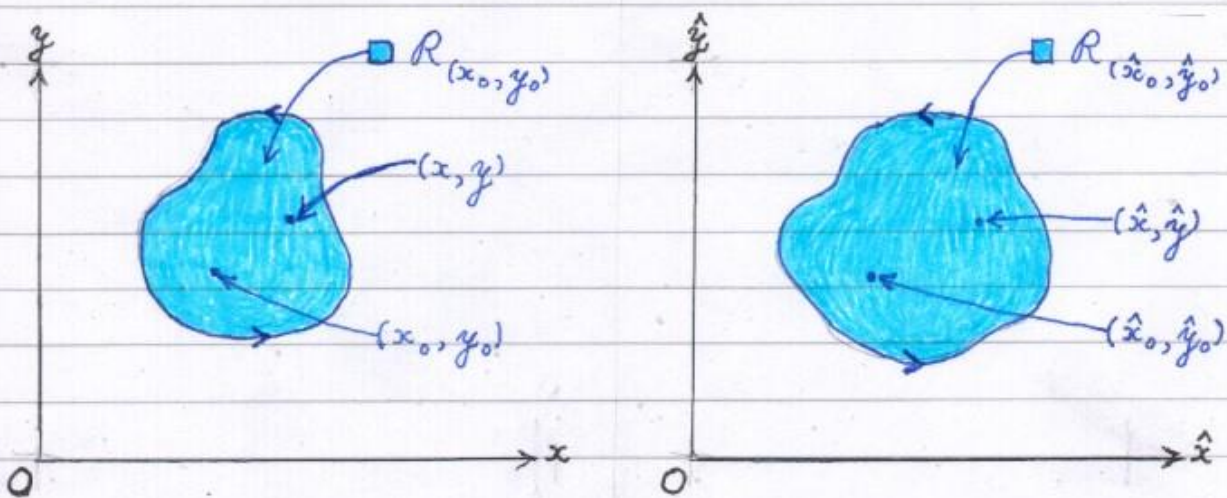 y
R(x₀, y₀)
(x, y)
(x₀, y₀)
O
x
ŷ
R(x̂₀, ŷ₀)
(x̂, ŷ)
(x̂₀, ŷ₀)
O
x̂